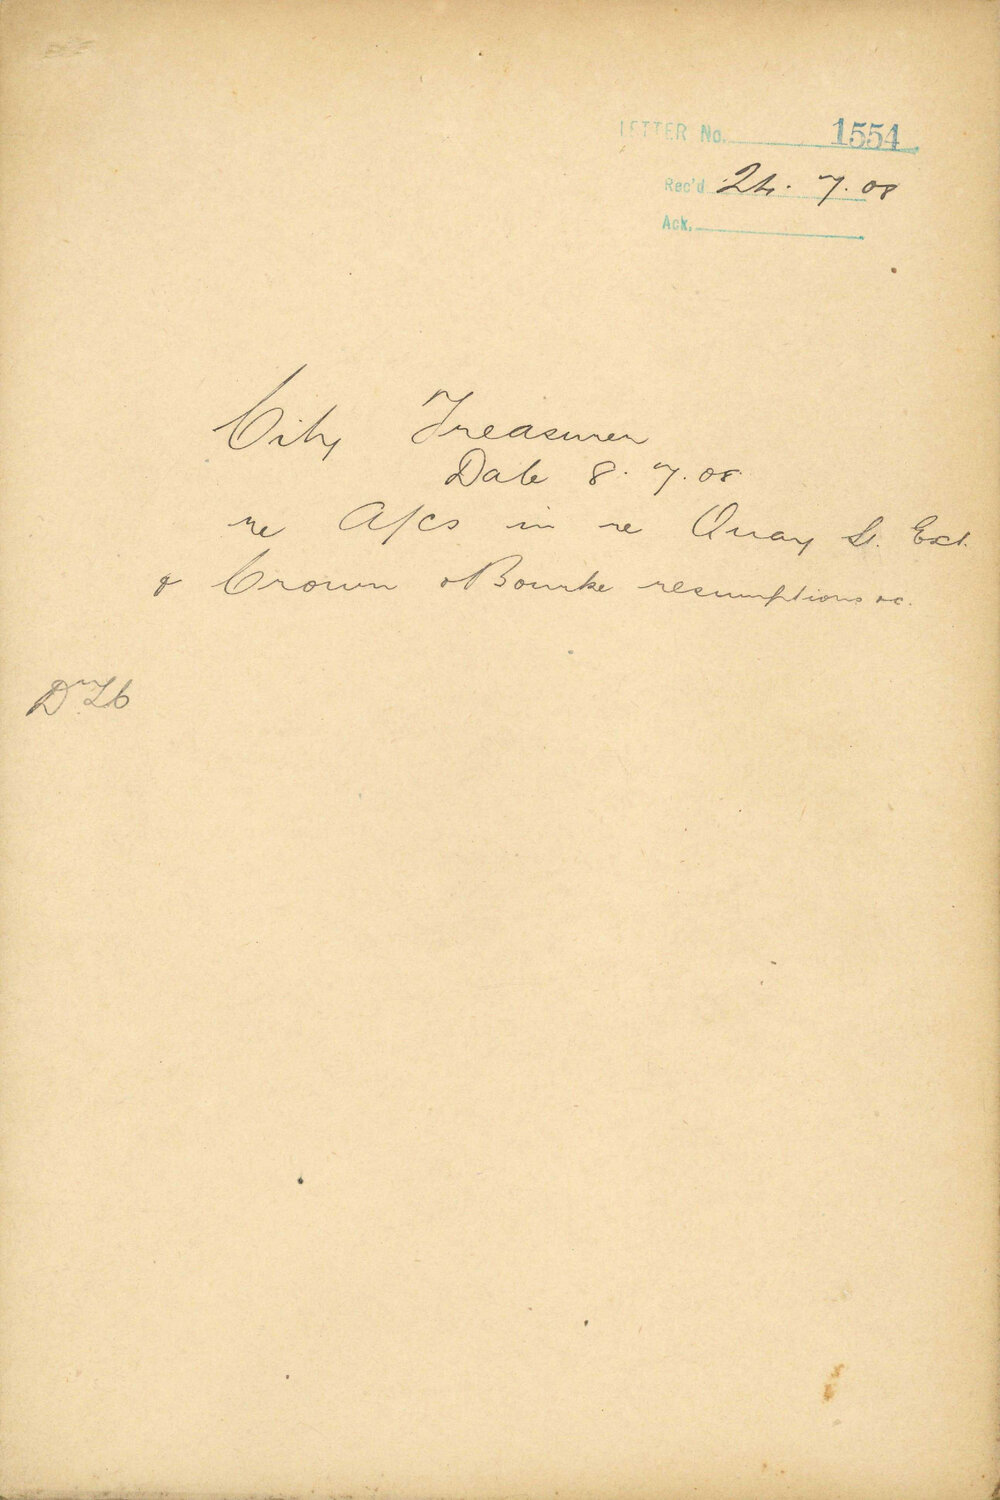 LETTER No. 1554
Rec'd 24. 7. 08
Ack.
City Treasurer
Date 8. 7. 08
re A/cs in re Quay St. Ext.
& Crown & Bourke resumptions &c.